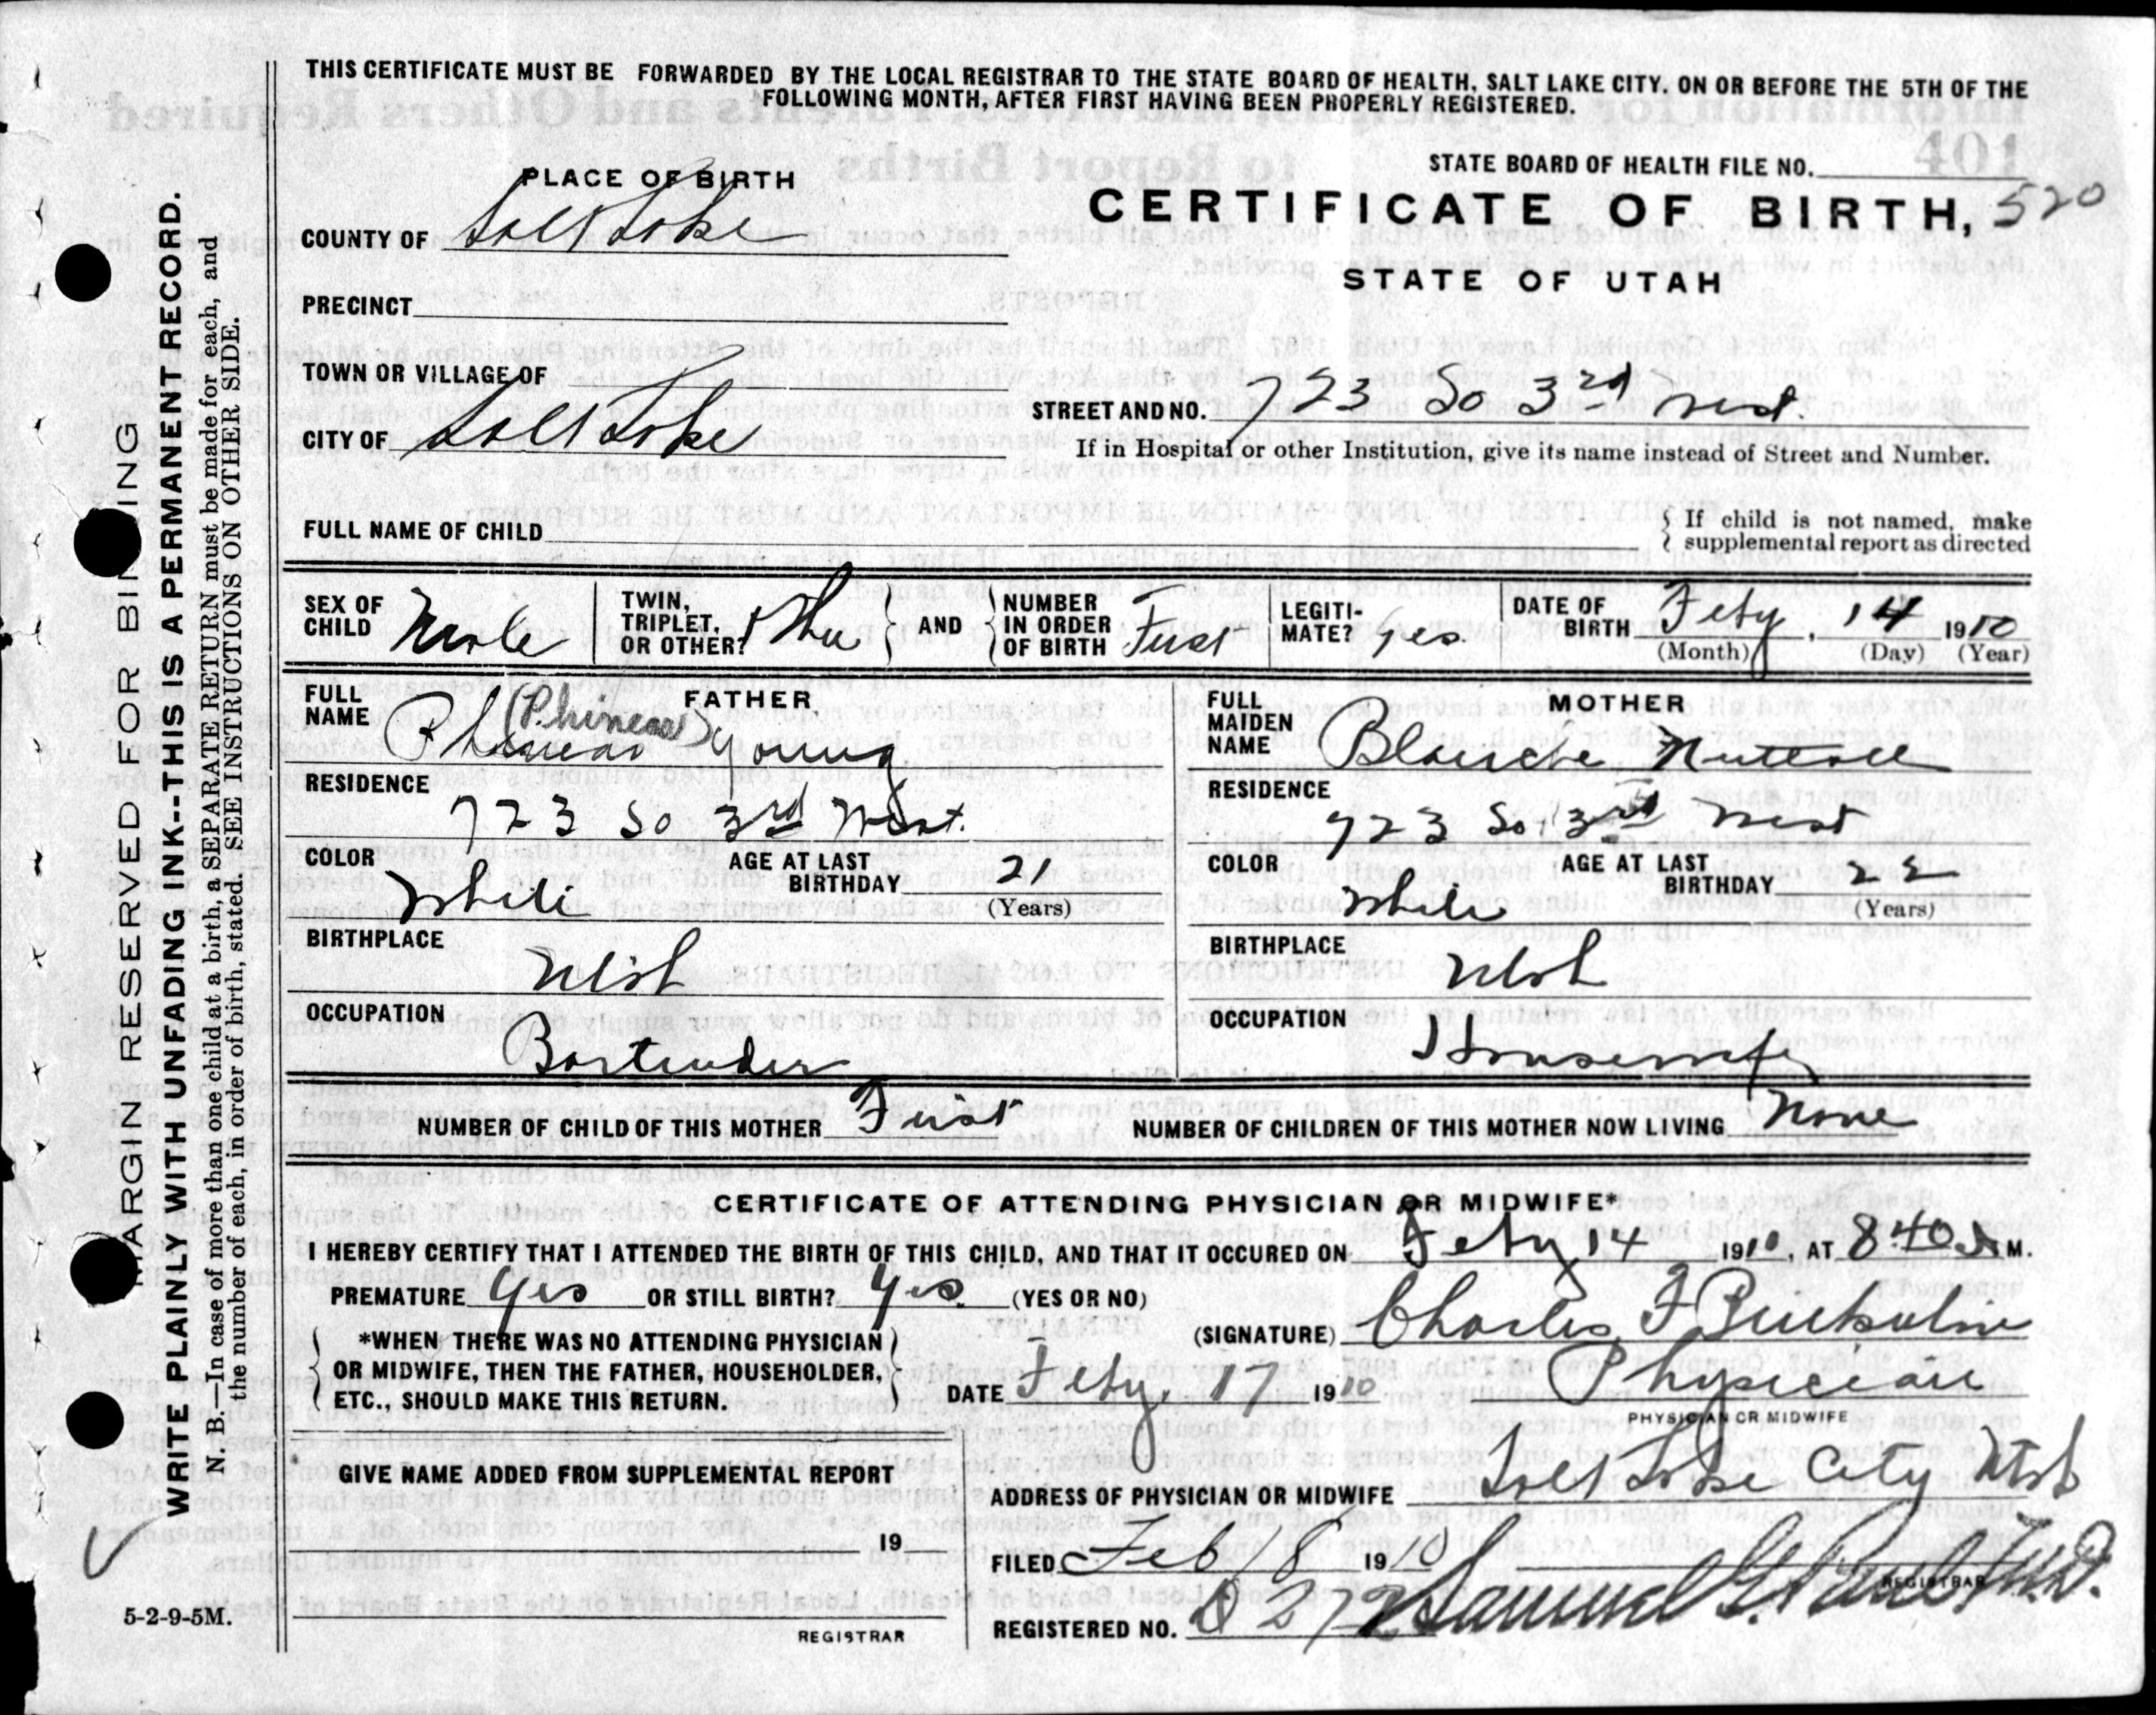 THIS CERTIFICATE MUST BE FORWARDED BY THE LOCAL REGISTRAR TO THE STATE BOARD OF HEALTH, SALT LAKE CITY, ON OR BEFORE THE 5TH OF THE
FOLLOWING MONTH, AFTER FIRST HAVING BEEN PROPERLY REGISTERED.
STATE BOARD OF HEALTH FILE NO.
PLACE OF BIRTH
CERTIFICATE OF BIRTH, 520
COUNTY OF Salt Lake
STATE OF UTAH
PRECINCT
TOWN OR VILLAGE OF
STREET AND NO. 723 So 3rd West.
CITY OF Salt Lake
If in Hospital or other Institution, give its name instead of Street and Number.
FULL NAME OF CHILD
If child is not named, make
supplemental report as directed
SEX OF CHILD Male
TWIN, TRIPLET, OR OTHER?
AND
NUMBER IN ORDER OF BIRTH First
LEGITIMATE? Yes.
DATE OF BIRTH Feby, 14 1910
(Month) (Day) (Year)
FATHER
FULL NAME Phineas (Phineas) Young
RESIDENCE 723 So 3rd West.
COLOR White
AGE AT LAST BIRTHDAY 21 (Years)
BIRTHPLACE Utah
OCCUPATION Bartender
MOTHER
FULL MAIDEN NAME Blanche Nuttall
RESIDENCE 723 So. 3rd West
COLOR White
AGE AT LAST BIRTHDAY 22 (Years)
BIRTHPLACE Utah
OCCUPATION Housewife
NUMBER OF CHILD OF THIS MOTHER First NUMBER OF CHILDREN OF THIS MOTHER NOW LIVING None
CERTIFICATE OF ATTENDING PHYSICIAN OR MIDWIFE*
I HEREBY CERTIFY THAT I ATTENDED THE BIRTH OF THIS CHILD, AND THAT IT OCCURED ON Feby 14 1910, AT 8:40 A M.
PREMATURE Yes OR STILL BIRTH? Yes. (YES OR NO)
*WHEN THERE WAS NO ATTENDING PHYSICIAN
OR MIDWIFE, THEN THE FATHER, HOUSEHOLDER,
ETC., SHOULD MAKE THIS RETURN.
(SIGNATURE) Charles F
DATE Feby. 17 1910
Physician
PHYSICIAN OR MIDWIFE
GIVE NAME ADDED FROM SUPPLEMENTAL REPORT
19
REGISTRAR
ADDRESS OF PHYSICIAN OR MIDWIFE Salt Lake City Utah
FILED Feb 18 1910
REGISTRAR
REGISTERED NO. D 272 Samuel G. Paul M.D.
5-2-9-5M.
MARGIN RESERVED FOR BINDING
WRITE PLAINLY WITH UNFADING INK--THIS IS A PERMANENT RECORD.
N. B.—In case of more than one child at a birth, a SEPARATE RETURN must be made for each, and
the number of each, in order of birth, stated. SEE INSTRUCTIONS ON OTHER SIDE.